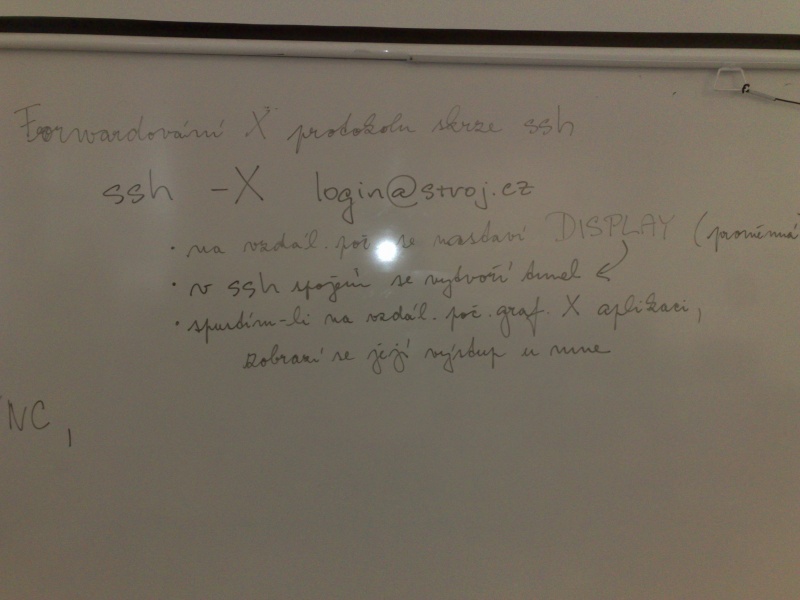 Forwardování X protokolu skrze ssh
ssh -X login@stroj.cz
• na vzdál. poč. se nastaví DISPLAY (proměnná
• v ssh spojení se vytvoří tunel
• spustím-li na vzdál. poč. graf. X aplikaci,
zobrazí se její výstup u mne
NC,